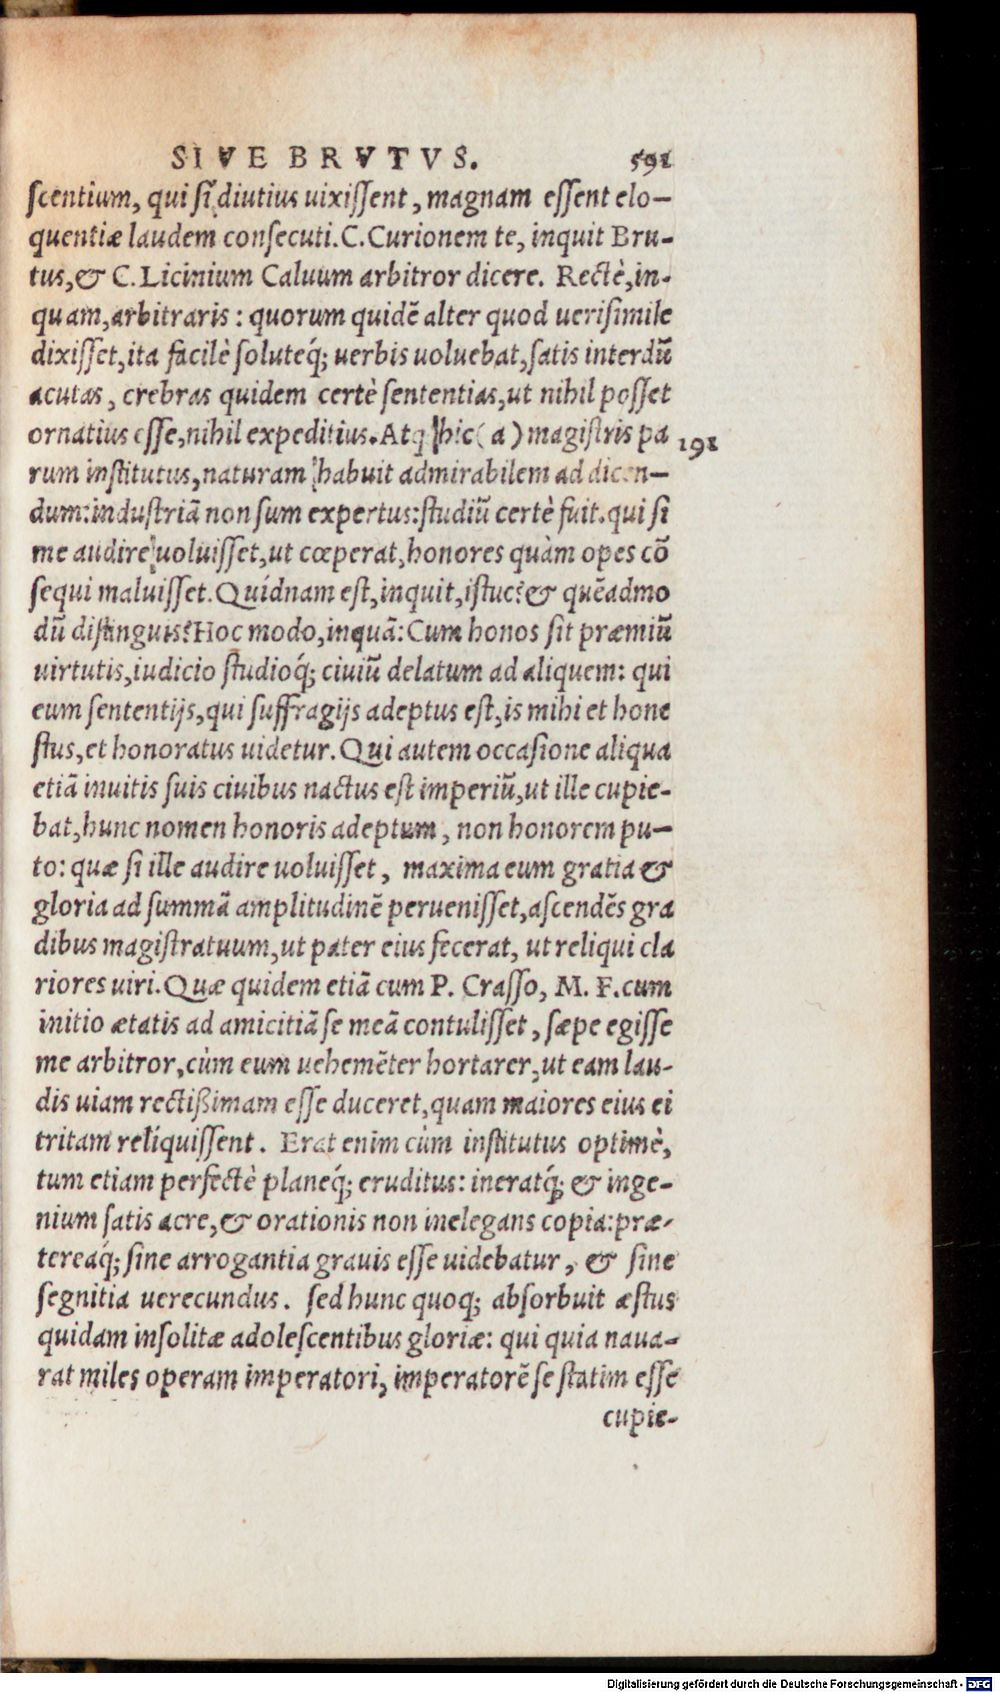 SIVE BRVTVS. 591
scentium, qui si diutius uixissent, magnam essent elo-
quentiæ laudem consecuti. C. Curionem te, inquit Bru-
tus, & C. Licinium Caluum arbitror dicere. Rectè, in-
quam, arbitraris: quorum quidẽ alter quod uerisimile
dixisset, ita facilè soluteq́; uerbis uoluebat, satis interdũ
acutas, crebras quidem certè sententias, ut nihil posset
ornatius esse, nihil expeditius. Atq hic (a) magistris pa 191
rum institutus, naturam habuit admirabilem ad dicen-
dum: industriã non sum expertus: studiũ certè fuit. qui si
me audire uoluisset, ut cœperat, honores quàm opes cõ
sequi maluisset. Quídnam est, inquit, istuc? & quẽadmo
dũ distinguis? Hoc modo, inquã: Cum honos sit præmiũ
uirtutis, iudicio studioq́; ciuiũ delatum ad aliquem: qui
eum sententijs, qui suffragijs adeptus est, is mihi et hone
stus, et honoratus uidetur. Qui autem occasione aliqua
etiã inuitis suis ciuibus nactus est imperiũ, ut ille cupie-
bat, hunc nomen honoris adeptum, non honorem pu-
to: quæ si ille audire uoluisset, maxima eum gratia &
gloria ad summã amplitudinẽ peruenisset, ascendẽs gra
dibus magistratuum, ut pater eius fecerat, ut reliqui cla
riores uiri. Quæ quidem etiã cum P. Crasso, M. F. cum
initio ætatis ad amicitiã se meã contulisset, sæpe egisse
me arbitror, cùm eum uehemẽter hortarer, ut eam lau-
dis uiam rectißimam esse duceret, quam maiores eius ei
tritam relíquissent. Erat enim cùm institutus optimè,
tum etiam perfectè planeq́; eruditus: ineratq́; & inge-
nium satis acre, & orationis non inelegans copia: præ-
tereaq́; sine arrogantia grauis esse uidebatur, & sine
segnitia uerecundus. sed hunc quoq; absorbuit æstus
quidam insolitæ adolescentibus gloriæ: qui quia naua-
rat miles operam imperatori, imperatorẽ se statim esse
cupie-
Digitalisierung gefördert durch die Deutsche Forschungsgemeinschaft - DFG